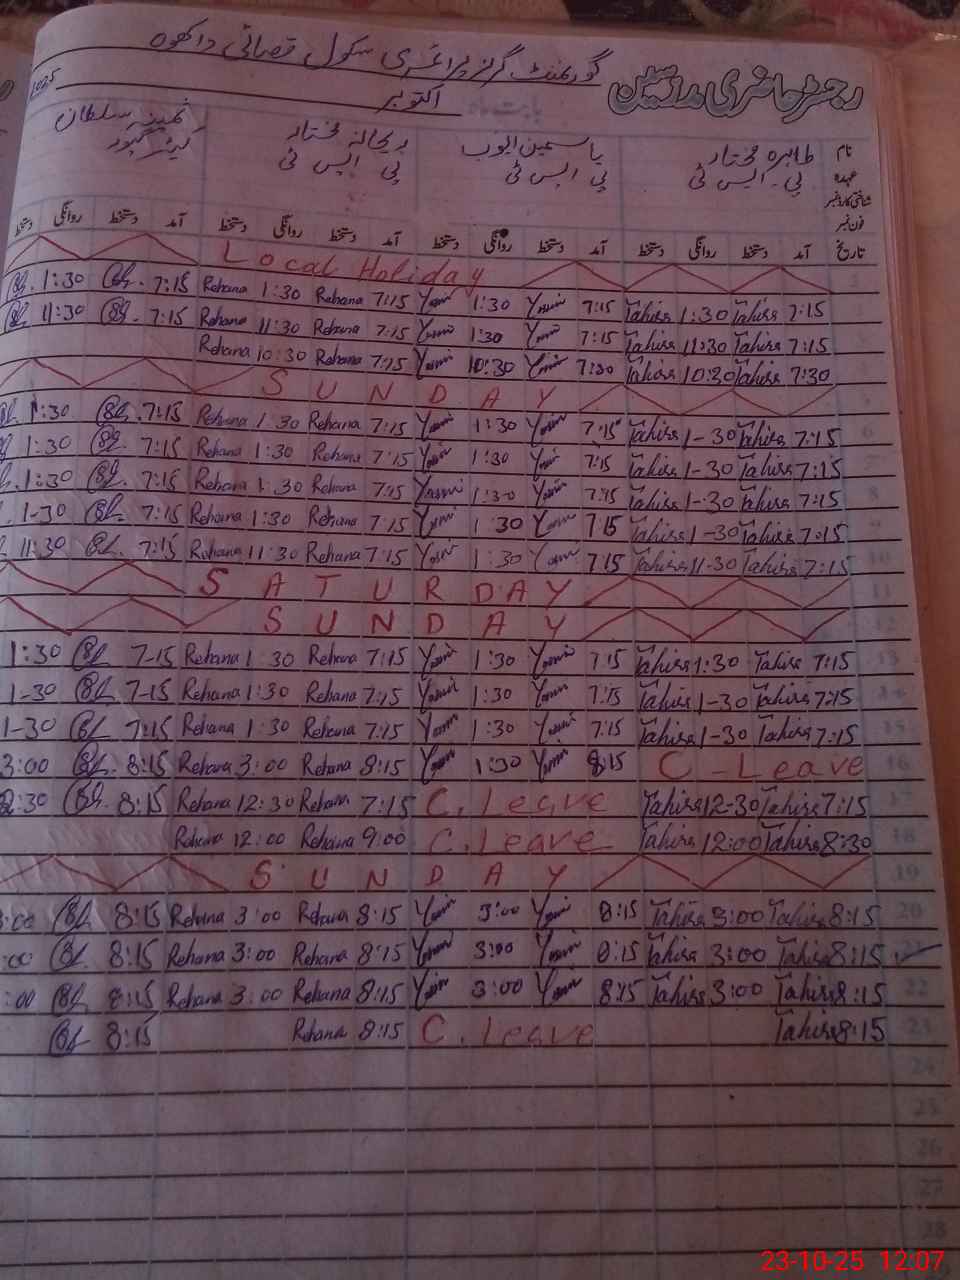 رجسٹر حاضری مدرسین
گورنمنٹ گرلز پرائمری سکول قصائی داکھوہ
بابت ماہ اکتوبر 2025
نام طاہرہ مختار یاسمین ایوب ریحانہ مختار ثمینہ سلطان
عہدہ پی۔ایس ٹی پی ایس ٹی پی ایس ٹی
شناختی کارڈ نمبر
فون نمبر
تاریخ آمد دستخط روانگی دستخط آمد دستخط روانگی دستخط آمد دستخط روانگی دستخط آمد دستخط روانگی دستخط
Local Holiday
1:30 7:15 Rehana 1:30 Rehana 7:15 Yasmin 1:30 Yasmin 7:15 Tahira 1:30 Tahira 7:15
11:30 7:15 Rehana 11:30 Rehana 7:15 Yasmin 1:30 Yasmin 7:15 Tahira 11:30 Tahira 7:15
Rehana 10:30 Rehana 7:15 Yasmin 10:30 Yasmin 7:30 Tahira 10:30 Tahira 7:30
SUNDAY
1:30 7:15 Rehana 1:30 Rehana 7:15 Yasmin 1:30 Yasmin 7:15 Tahira 1-30 Tahira 7:15 6
1:30 7:15 Rehana 1:30 Rehana 7:15 Yasmin 1:30 Yasmin 7:15 Tahira 1-30 Tahira 7:15
1:30 7:15 Rehana 1:30 Rehana 7:15 Yasmin 1:30 Yasmin 7:15 Tahira 1-30 Tahira 7:15 8
1-30 7:15 Rehana 1:30 Rehana 7:15 Yasmin 1:30 Yasmin 7:15 Tahira 1-30 Tahira 7:15 9
11:30 7:15 Rehana 11:30 Rehana 7:15 Yasmin 1:30 Yasmin 7:15 Tahira 11-30 Tahira 7:15 10
SATURDAY 11
SUNDAY 12
1:30 7-15 Rehana 1:30 Rehana 7:15 Yasmin 1:30 Yasmin 7:15 Tahira 1:30 Tahira 7:15 13
1-30 7-15 Rehana 1:30 Rehana 7:15 Yasmin 1:30 Yasmin 7:15 Tahira 1-30 Tahira 7:15 14
1-30 7:15 Rehana 1:30 Rehana 7:15 Yasmin 1:30 Yasmin 7:15 Tahira 1-30 Tahira 7:15 15
3:00 8:15 Rehana 3:00 Rehana 8:15 Yasmin 1:30 Yasmin 8:15 C-Leave 16
2:30 8:15 Rehana 12:30 Rehana 7:15 C.Leave Tahira 12-30 Tahira 7:15 17
Rehana 12:00 Rehana 9:00 C.Leave Tahira 12:00 Tahira 8:30 18
SUNDAY 19
:00 8:15 Rehana 3:00 Rehana 8:15 Yasmin 3:00 Yasmin 8:15 Tahira 3:00 Tahira 8:15 20
:00 8:15 Rehana 3:00 Rehana 8:15 Yasmin 3:00 Yasmin 8:15 Tahira 3:00 Tahira 8:15 21
:00 8:15 Rehana 3:00 Rehana 8:15 Yasmin 3:00 Yasmin 8:15 Tahira 3:00 Tahira 8:15 22
8:15 Rehana 8:15 C.Leave Tahira 8:15 23
24
25
26
27
28
23-10-25 12:07